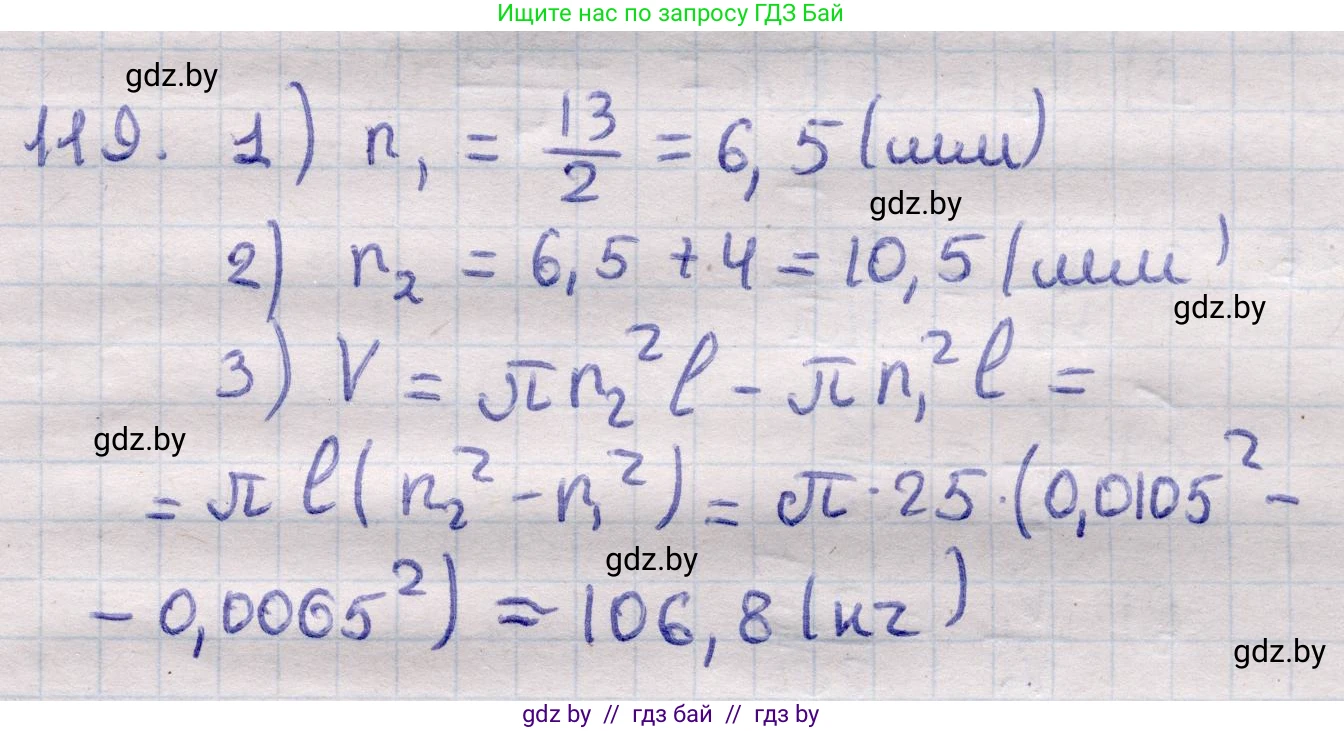 Ищите нас по запросу ГДЗ Бай
gdz.by
119. 1) r₁ = 13/2 = 6,5 (мм)
gdz.by
2) r₂ = 6,5 + 4 = 10,5 (мм)
gdz.by
3) V = πr₂²l - πr₁²l =
gdz.by
= πl(r₂² - r₁²) = π·25·(0,0105² -
gdz.by
- 0,0065²) ≈ 106,8 (кг)
gdz.by
gdz by // гдз бай // гдз by